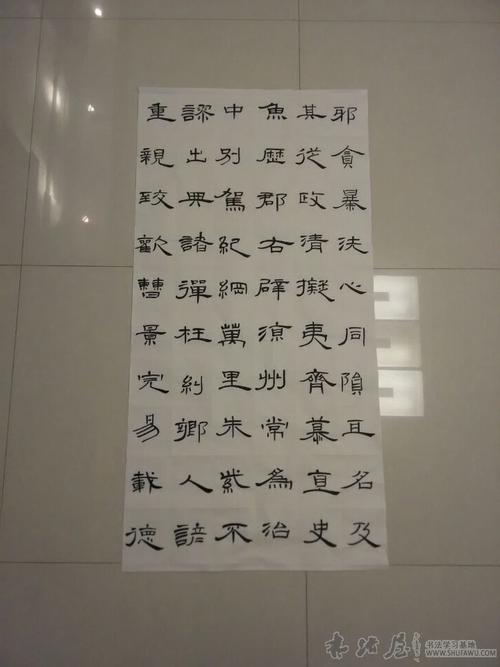 邪貪暴洗心同隕互名及
其從政清擬夷齊慕直史
魚歷郡右辟涼州常為治
中別駕紀綱萬里朱紫不
謬出典諸彈枉糾鄉人諺
重親致歡曹景完易載德
书法屋
书法学习基地
WWW.SHUFAWU.COM